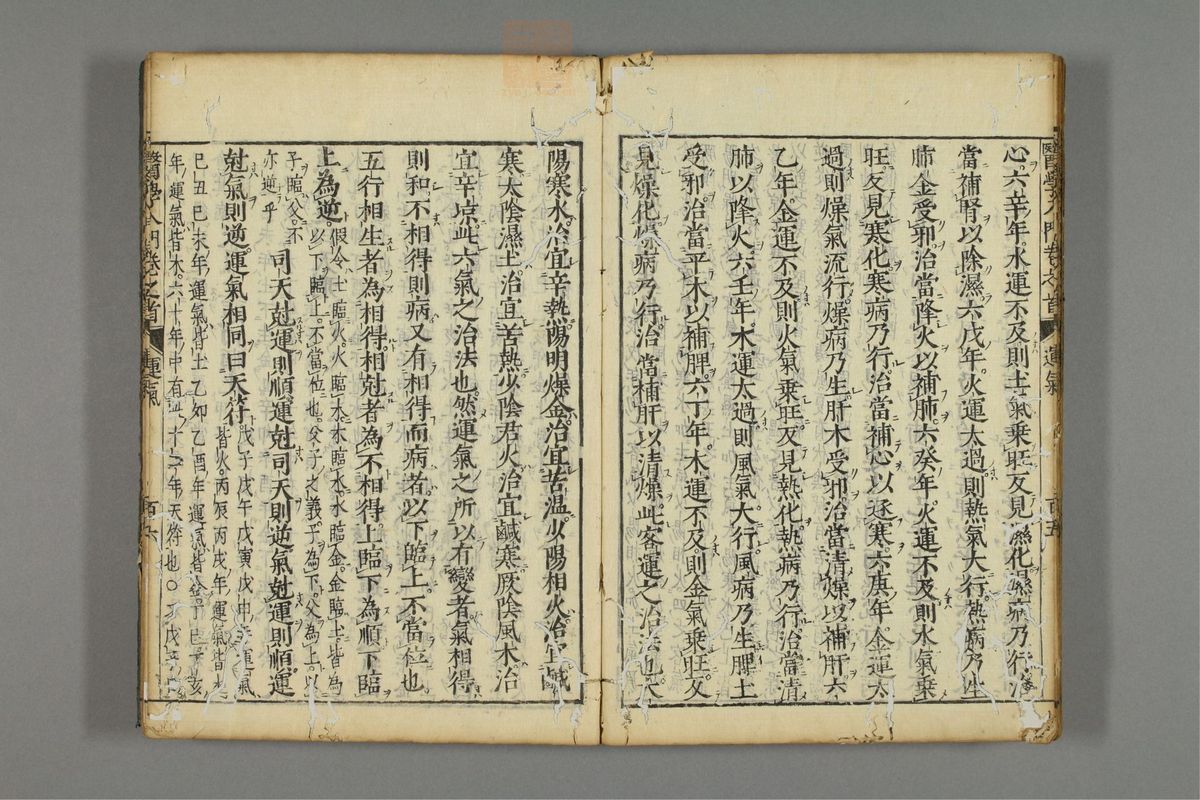 醫學入門卷之首 運氣 百五
心。六辛年。水運不及則土氣乘旺。反見濕化。濕病乃行。治
當補腎以除濕。六戊年。火運太過。則熱氣大行。熱病乃生
肺金受邪。治當降火以補肺。六癸年。火運不及。則水氣乘
旺。反見寒化。寒病乃行。治當補心以逐寒。六庚年。金運太
過。則燥氣流行。燥病乃生。肝木受邪。治當清燥以補肝。六
乙年。金運不及。則火氣乘旺。反見熱化。熱病乃行。治當清
肺以降火。六壬年。木運太過。則風氣大行。風病乃生。脾土
受邪。治當平木以補脾。六丁年。木運不及。則金氣乘旺。反
見燥化。燥病乃行。治當補肝以清燥。此客運之治法也。太
陽寒水。治宜辛熱。陽明燥金。治宜苦溫。少陽相火。治宜鹹
寒。太陰濕土。治宜苦熱。少陰君火。治宜鹹寒。厥陰風木。治
宜辛凉。此六氣之治法也。然運氣之所以有變者。氣相得
則和。不相得則病。又有相得而病者。以下臨上。不當位也。
五行相生者為相得。相尅者為不相得。上臨下為順。下臨
上為逆。假令土臨火。火臨木。木臨水。水臨金。金臨土。皆為
以下臨上。不當位也。父子之義。子為下。父為上。以
子臨父。不
亦逆乎
司天尅運則順。運尅司天則逆。氣尅運則順。運
尅氣則逆。運氣相同曰天符。戊子戊午戊寅戊申年運氣
皆火。丙辰丙戌年。運氣皆水
己丑己未年。運氣皆土。乙卯乙酉年。運氣皆金。丁巳丁亥
年。運氣皆木。六十年中有此十二年天符也。○
醫學入門卷之首 運氣 百六